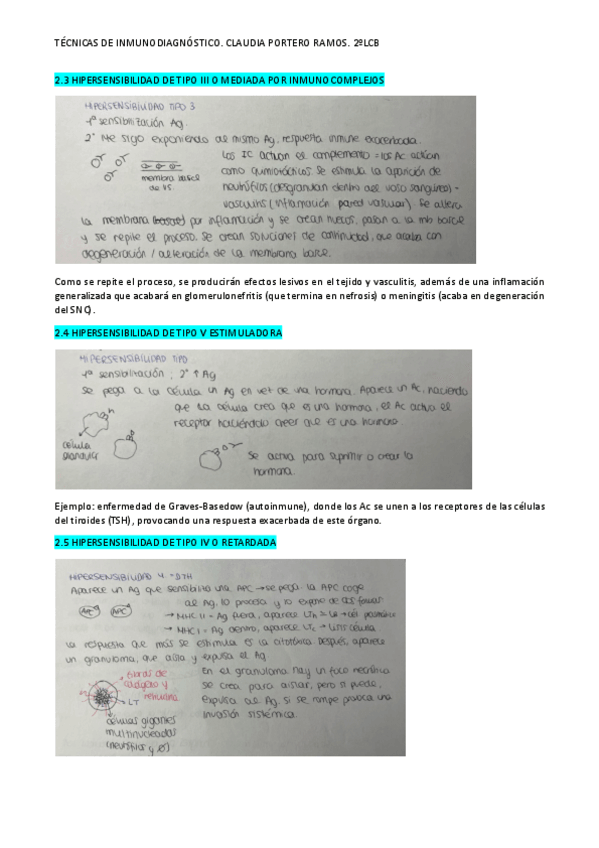 TÉCNICAS DE INMUNODIAGNÓSTICO. CLAUDIA PORTERO RAMOS. 2ºLCB
2.3 HIPERSENSIBILIDAD DE TIPO III O MEDIADA POR INMUNOCOMPLEJOS
HIPERSENSIBILIDAD TIPO 3
-1ª sensibilización Ag.
2º Me sigo exponiendo al mismo Ag, respuesta inmune exacerbada.
los IC activan el complemento = los Ac actúan
como quimiotácticos. Se estimula la aparición de
membrana basal
de VS.
neutrófilos (desgranulan dentro del vaso sanguíneo) -
vasculitis (inflamación pared vascular). Se altera
la membrana por inflamación y se crean huecos, pasan a la mb basal
y se repite el proceso. Se crean soluciones de continuidad, que acaba con
degeneración / alteración de la membrana basal.
Como se repite el proceso, se producirán efectos lesivos en el tejido y vasculitis, además de una inflamación
generalizada que acabará en glomerulonefritis (que termina en nefrosis) o meningitis (acaba en degeneración
del SNC).
2.4 HIPERSENSIBILIDAD DE TIPO V ESTIMULADORA
HIPERSENSIBILIDAD TIPO
-1ª sensibilización; 2º ↑ Ag
Se pega a la célula un Ag en vez de una hormona. Aparece un Ac, haciendo
que la célula crea que es una hormona, el Ac activa el
receptor haciéndolo creer que es una hormona.
célula
glandular
Se activa para suprimir o crear la
hormona.
Ejemplo: enfermedad de Graves-Basedow (autoinmune), donde los Ac se unen a los receptores de las células
del tiroides (TSH), provocando una respuesta exacerbada de este órgano.
2.5 HIPERSENSIBILIDAD DE TIPO IV O RETARDADA
HIPERSENSIBILIDAD 4 - DTH
Aparece un Ag que sensibiliza una APC → se pega. la APC coge
al Ag, lo procesa y lo expone de
APC APC
→ MHC II = Ag fuera, aparece
→ MHC I = Ag dentro, aparece LTc → célula
la respuesta que más se estimula es la citotóxica. Después, aparece
un granuloma, que aísla y expulsa el Ag
fibras de
colágeno y
reticulina
LT
células gigantes
multinucleadas
En el granuloma hay un foco necrótico
se crea para aislar, pero si puede,
expulsa al Ag. si se rompe provoca una
invasión sistémica.